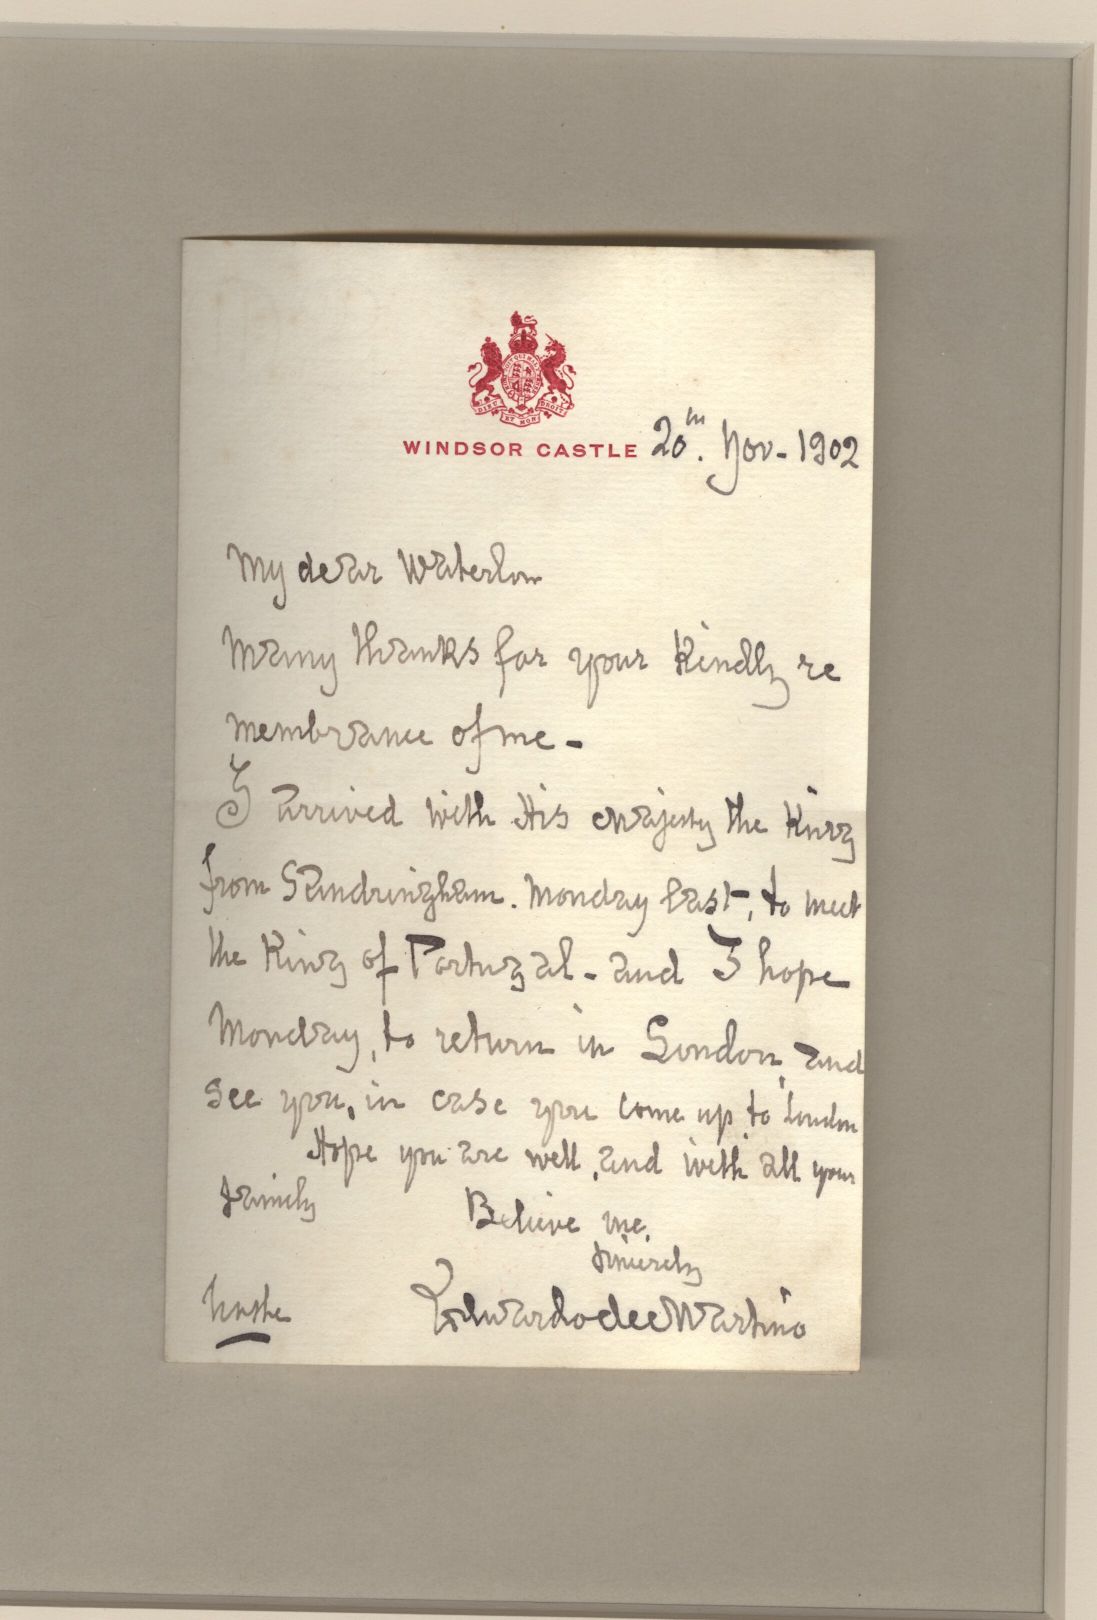 DIEU ET MON DROIT
WINDSOR CASTLE 20th. Nov- 1902
My dear Waterlow
Many thanks for your Kindly re
membrance of me -
I arrived with His Majesty the King
from Sandringham. Monday last, to meet
the King of Portugal - and I hope
Monday, to return in London, and
see you, in case you come up to London
Hope you are well, and with all your
family Believe me.
sincerely
Edwardo de Martino